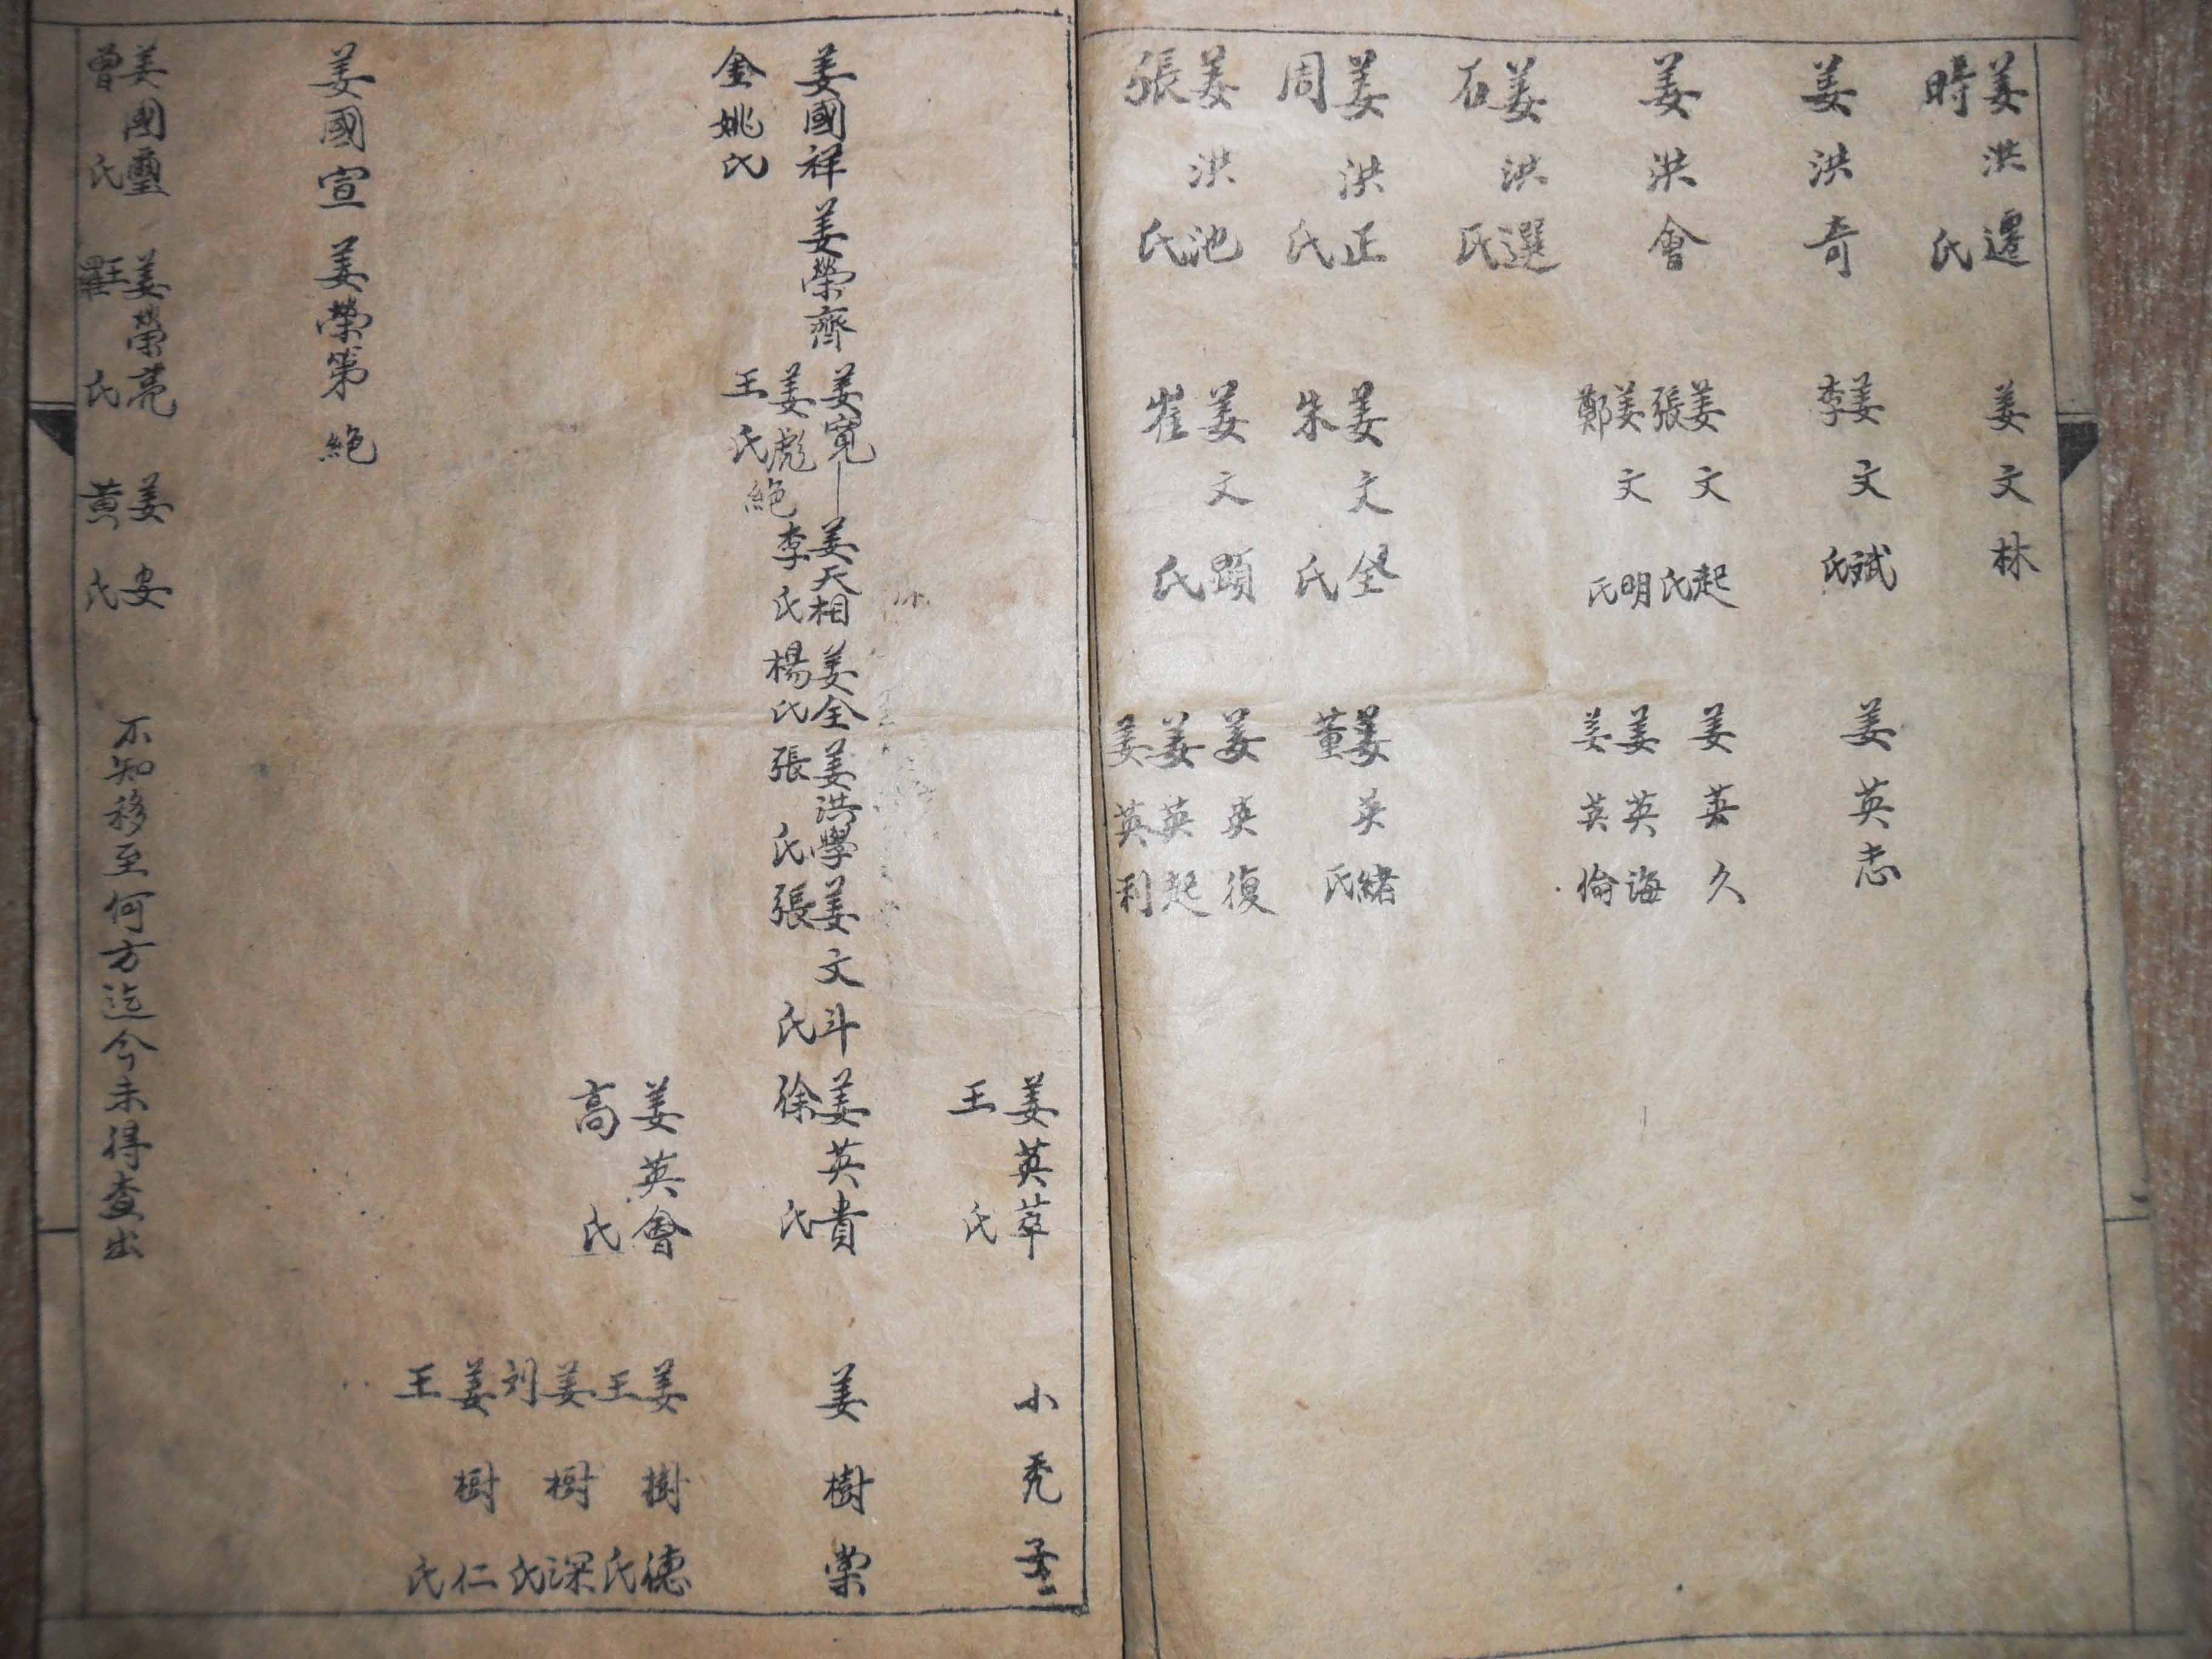 姜洪遷
時氏
姜文林
姜洪奇
姜文斌
李氏
姜英志
姜洪會
姜文起
張氏
姜英久
姜文明
鄭氏
姜英海
姜英倫
姜洪選
石氏
姜洪正
周氏
姜文全
朱氏
姜英緒
董氏
姜洪池
張氏
姜文顕
崔氏
姜英復
姜英起
姜英利
姜英萃
王氏
小禿子
姜國祥
金姚氏
姜榮齊
姜寬
姜彪絕
王氏
姜天相
李氏
姜全
楊氏
姜洪學
張氏
姜文斗
張氏
姜英貴
徐氏
姜樹棠
姜英會
高氏
姜樹德
王氏
姜樹深
刘氏
姜樹仁
王氏
姜國宣
姜榮第
絕
姜國璽
曾氏
姜榮亮
氏
姜安
黃氏
不知移至何方迄今未得查出